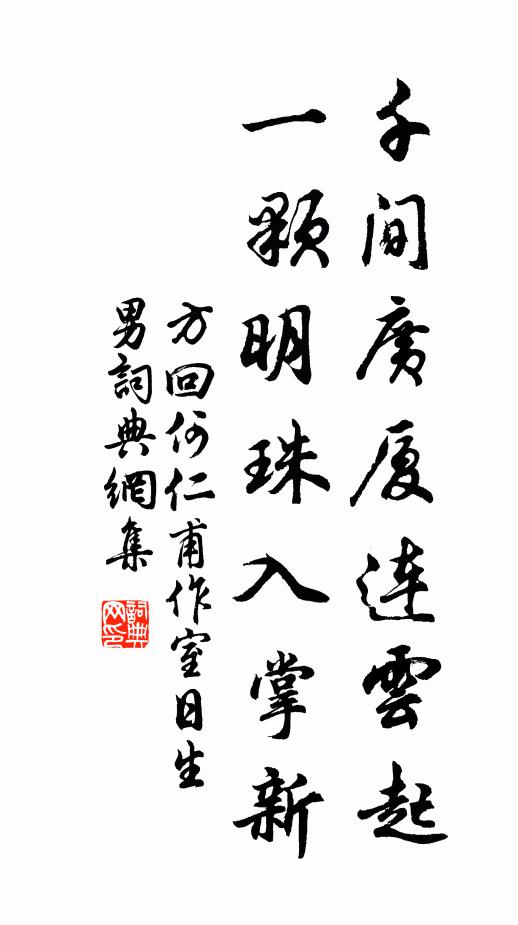 千间廣厦連雲起
一顆明珠入掌新
方回何仁甫作室日生
男詞典網集
詞典
网印